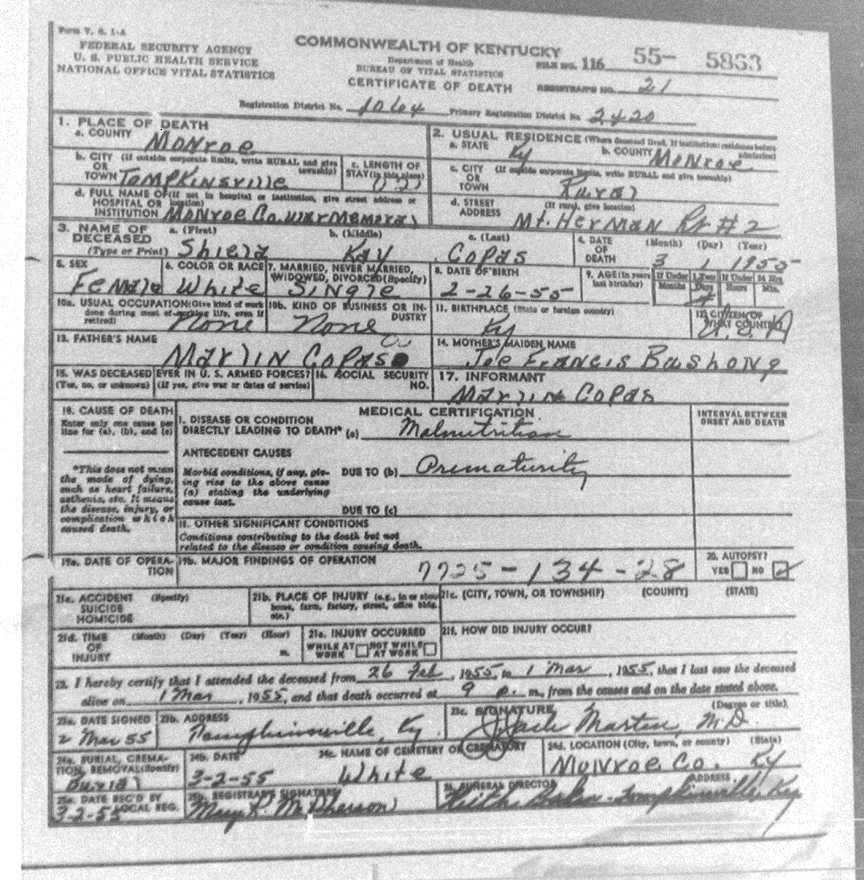 Form V. S. 1-A
FEDERAL SECURITY AGENCY
U. S. PUBLIC HEALTH SERVICE
NATIONAL OFFICE VITAL STATISTICS
COMMONWEALTH OF KENTUCKY
Department of Health
BUREAU OF VITAL STATISTICS
CERTIFICATE OF DEATH
FILE NO. 116 55- 5863
REGISTRAR'S NO. 21
Registration District No. 1064 Primary Registration District No. 2420
1. PLACE OF DEATH
a. COUNTY Monroe
2. USUAL RESIDENCE (Where deceased lived. If institution: residence before admission)
a. STATE Ky b. COUNTY Monroe
b. CITY (If outside corporate limits, write RURAL and give township)
OR
TOWN Tompkinsville
c. LENGTH OF
STAY (in this place)
c. CITY (If outside corporate limits, write RURAL and give township)
OR
TOWN Rural
d. FULL NAME OF (If not in hospital or institution, give street address or location)
HOSPITAL OR
INSTITUTION Monroe Co. War Memorial
d. STREET (If rural, give location)
ADDRESS Mt. Herman Rt #2
3. NAME OF DECEASED
(Type or Print)
a. (First) b. (Middle) c. (Last)
Shiela Kay Copas
4. DATE OF DEATH
(Month) (Day) (Year)
3 1 1955
5. SEX
Female
6. COLOR OR RACE
White
7. MARRIED, NEVER MARRIED,
WIDOWED, DIVORCED (Specify)
Single
8. DATE OF BIRTH
2-26-55
9. AGE (In years last birthday)
If Under 1 Year
Months Days
If Under 24 Hrs.
Hours Min.
10a. USUAL OCCUPATION (Give kind of work done during most of working life, even if retired)
None
10b. KIND OF BUSINESS OR INDUSTRY
None
11. BIRTHPLACE (State or foreign country)
Ky
12. CITIZEN OF
WHAT COUNTRY?
13. FATHER'S NAME
Marlin Copas
14. MOTHER'S MAIDEN NAME
Joe Francis Bashong
15. WAS DECEASED EVER IN U. S. ARMED FORCES?
(Yes, no, or unknown) (If yes, give war or dates of service)
16. SOCIAL SECURITY NO.
17. INFORMANT
Marlin Copas
18. CAUSE OF DEATH
Enter only one cause per line for (a), (b), and (c)
*This does not mean the mode of dying, such as heart failure, asthenia, etc. It means the disease, injury, or complication which caused death.
MEDICAL CERTIFICATION
INTERVAL BETWEEN
ONSET AND DEATH
I. DISEASE OR CONDITION
DIRECTLY LEADING TO DEATH* (a) Malnutrition
ANTECEDENT CAUSES
Morbid conditions, if any, giving rise to the above cause (a) stating the underlying cause last.
DUE TO (b) Prematurity
DUE TO (c)
II. OTHER SIGNIFICANT CONDITIONS
Conditions contributing to the death but not
related to the disease or condition causing death.
19a. DATE OF OPERATION
19b. MAJOR FINDINGS OF OPERATION
7725-134-28
20. AUTOPSY?
YES NO
21a. ACCIDENT (Specify)
SUICIDE
HOMICIDE
21b. PLACE OF INJURY (e.g., in or about home, farm, factory, street, office bldg. etc.)
21c. (CITY, TOWN, OR TOWNSHIP) (COUNTY) (STATE)
21d. TIME (Month) (Day) (Year) (Hour)
OF
INJURY m.
21e. INJURY OCCURRED
WHILE AT WORK NOT WHILE AT WORK
21f. HOW DID INJURY OCCUR?
22. I hereby certify that I attended the deceased from 26 Feb, 1955, to 1 Mar, 1955, that I last saw the deceased
alive on 1 Mar, 1955, and that death occurred at 9 p. m., from the causes and on the date stated above.
23a. DATE SIGNED
2 Mar 55
23b. ADDRESS
Tompkinsville, Ky.
23c. SIGNATURE (Degree or title)
Jack Martin M.D.
24a. BURIAL, CREMATION, REMOVAL (Specify)
Burial
24b. DATE
3-2-55
24c. NAME OF CEMETERY OR CREMATORY
White
24d. LOCATION (City, town, or county) (State)
Monroe Co. Ky
25a. DATE REC'D BY LOCAL REG.
3-2-55
25b. REGISTRAR'S SIGNATURE
Mary L. McPherson
FUNERAL DIRECTOR ADDRESS
Tompkinsville, Ky